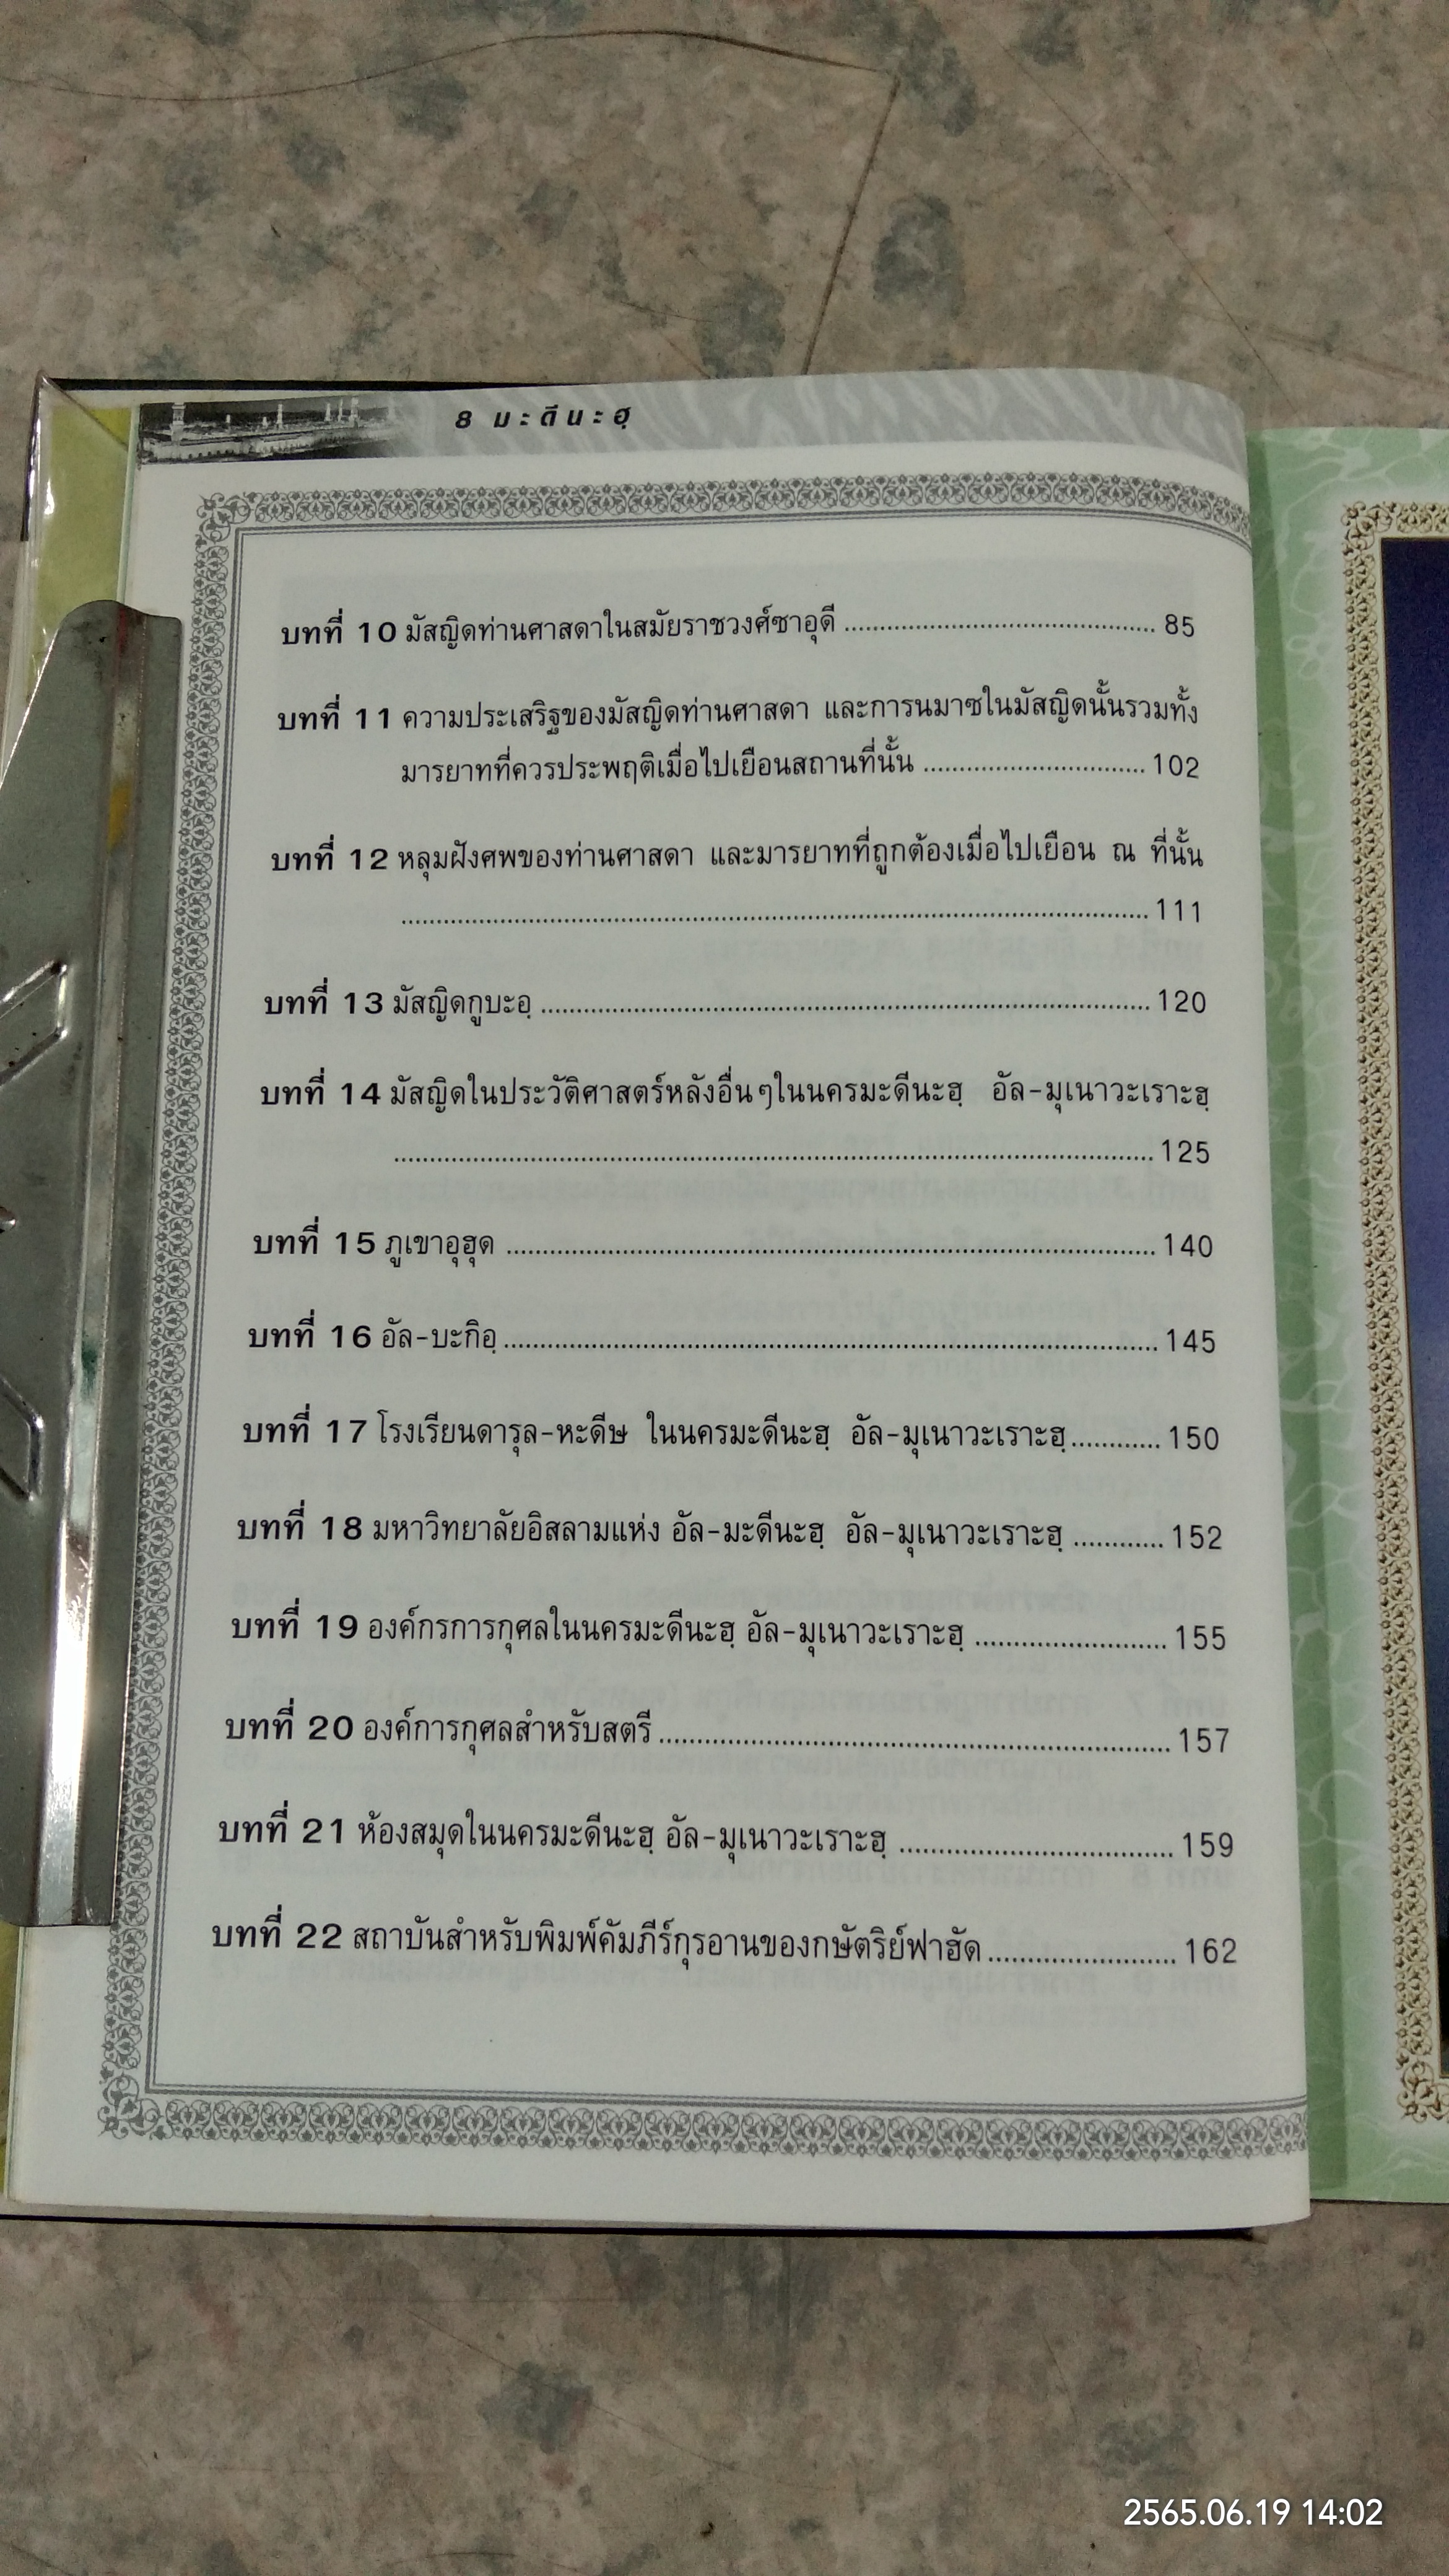 8 มะดีนะฮฺ
บทที่ 10 มัสญิดท่านศาสดาในสมัยราชวงศ์ซาอุดี ............................................ 85
บทที่ 11 ความประเสริฐของมัสญิดท่านศาสดา และการนมาซในมัสญิดนั้นรวมทั้ง
มารยาทที่ควรประพฤติเมื่อไปเยือนสถานที่นั้น ............................... 102
บทที่ 12 หลุมฝังศพของท่านศาสดา และมารยาทที่ถูกต้องเมื่อไปเยือน ณ ที่นั้น
........................................................................................................ 111
บทที่ 13 มัสญิดกูบะอฺ ..................................................................................... 120
บทที่ 14 มัสญิดในประวัติศาสตร์หลังอื่นๆในนครมะดีนะฮฺ อัล-มุเนาวะเราะฮฺ
.......................................................................................................... 125
บทที่ 15 ภูเขาอุฮุด .......................................................................................... 140
บทที่ 16 อัล-บะกิอฺ........................................................................................... 145
บทที่ 17 โรงเรียนดารุล-หะดีษ ในนครมะดีนะฮฺ อัล-มุเนาวะเราะฮฺ............ 150
บทที่ 18 มหาวิทยาลัยอิสลามแห่ง อัล-มะดีนะฮฺ อัล-มุเนาวะเราะฮฺ ............ 152
บทที่ 19 องค์กรการกุศลในนครมะดีนะฮฺ อัล-มุเนาวะเราะฮฺ ......................... 155
บทที่ 20 องค์การกุศลสำหรับสตรี.................................................................... 157
บทที่ 21 ห้องสมุดในนครมะดีนะฮฺ อัล-มุเนาวะเราะฮฺ .................................... 159
บทที่ 22 สถาบันสำหรับพิมพ์คัมภีร์กุรอานของกษัตริย์ฟาฮัด......................... 162
2565.06.19 14:02